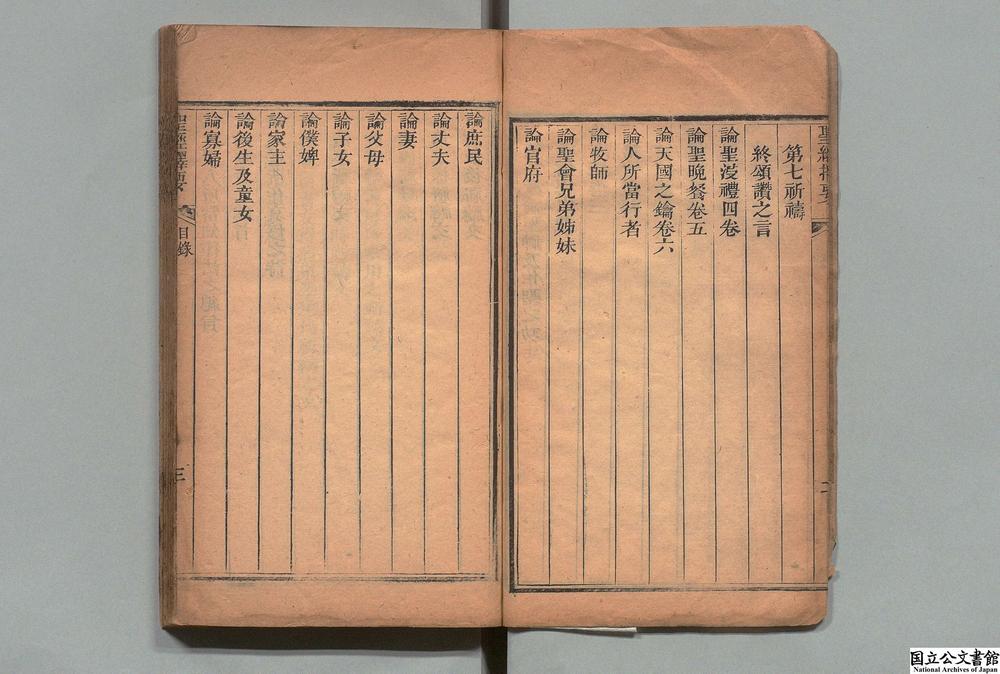 第七祈禱
終頌讚之言
論聖浸禮四卷
論聖晩餐卷五
論天國之鑰卷六
論人所當行者
論牧師
論聖會兄弟姊妹
論官府
論庶民
論丈夫
論妻
論父母
論子女
論僕婢
論家主
論後生及童女
論寡婦
目錄
三
国立公文書館
National Archives of Japan